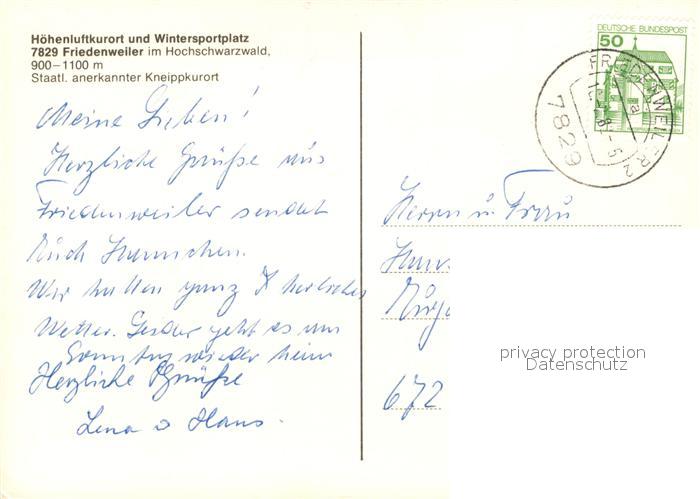 Höhenluftkurort und Wintersportplatz
7829 Friedenweiler im Hochschwarzwald,
900–1100 m
Staatl. anerkannter Kneippkurort
Meine Lieben!
Herzliche Grüße aus
Friedenweiler sendet
Euch
Wir hatten ganz herliches
Wetter. Leider geht es am
Sonntag wieder heim
Herzliche Grüße
Lena u Hans.
50
DEUTSCHE BUNDESPOST
FRIEDENWEILER 2
a
7829
Herrn u. Frau
672
privacy protection
Datenschutz